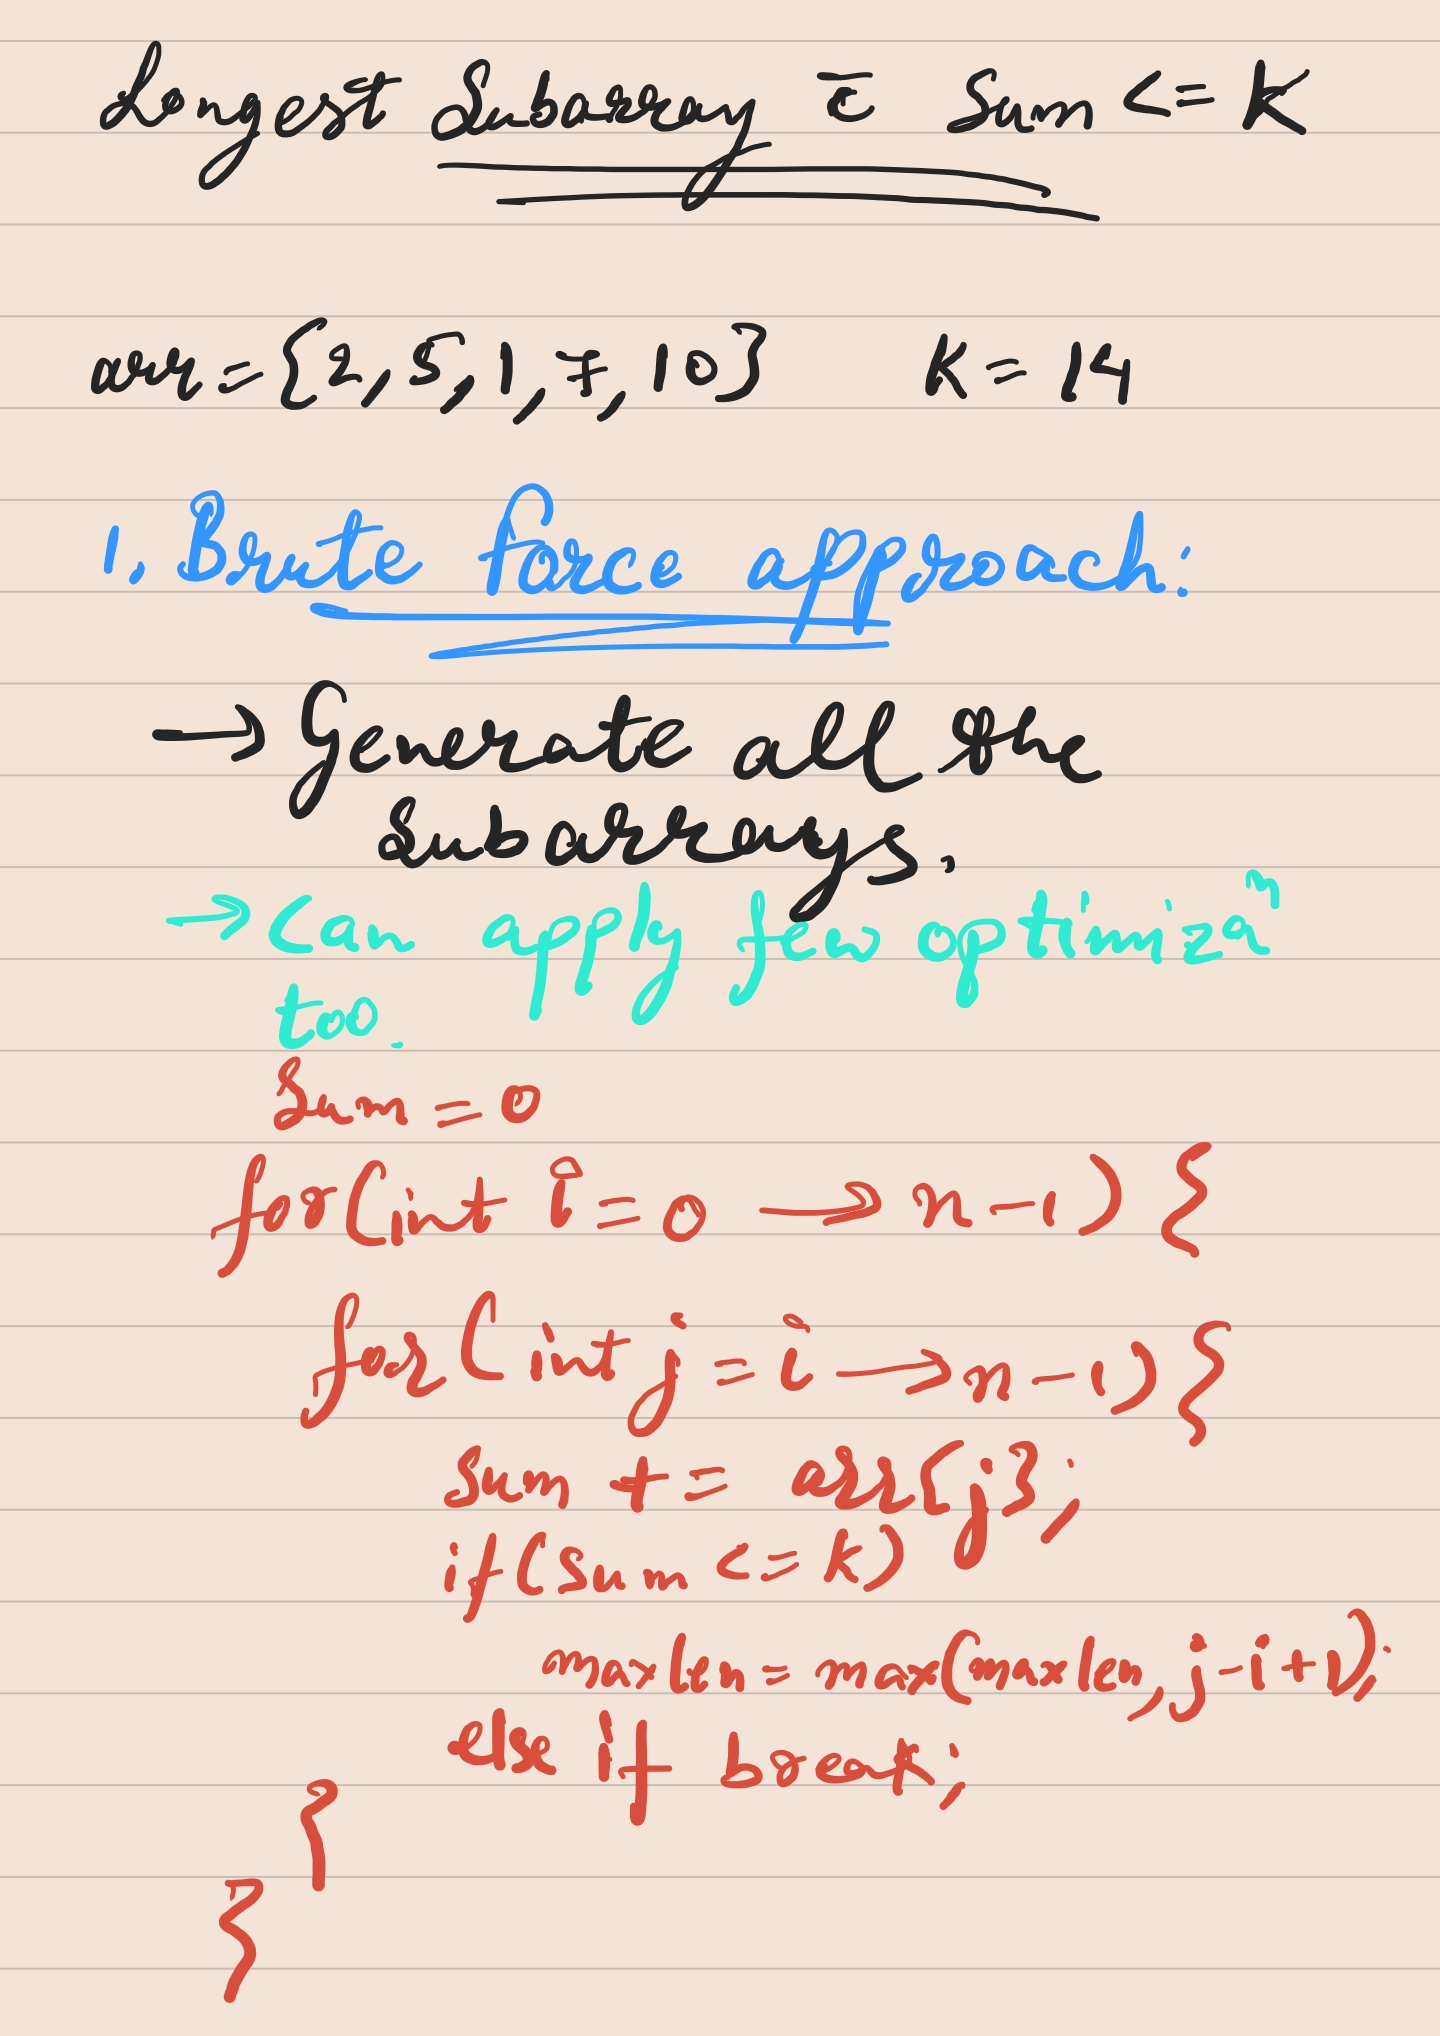 Longest Subarray c̄ Sum <= K
arr = {2, 5, 1, 7, 10} K = 14
1. Brute force approach:
→ Generate all the
Subarrays.
→ Can apply few optimizaⁿ
too.
Sum = 0
for(int i = 0 → n-1) {
for(int j = i → n-1) {
Sum += arr{j};
if(Sum <= k)
maxlen = max(maxlen, j-i+1);
else if break;
}
}